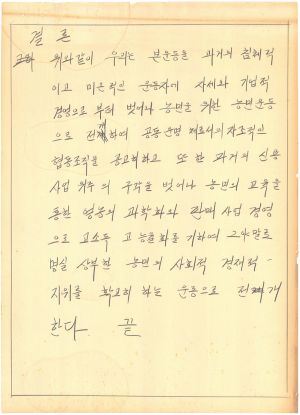 결론
위와 같이 우리는 본 운동을 과거의 침체적
이고 미온적인 운동자에 자세와 기업적
경영으로 부터 벗어나 농민을 위한 농민운동
으로 전개하여 공동운명 체로서의 자조적인
협동조직을 공고히하고 또 한 과거의 신용
사업 위주의 구각을 벗어나 농민의 교육을
통한 영농의 과학화와 판매사업 경영
으로 고소득 고 능률화를 기하여 그야말로
명실 상부한 농민의 사회적 경제적
지위를 확고히 하는 운동으로 전개
한다. 끝